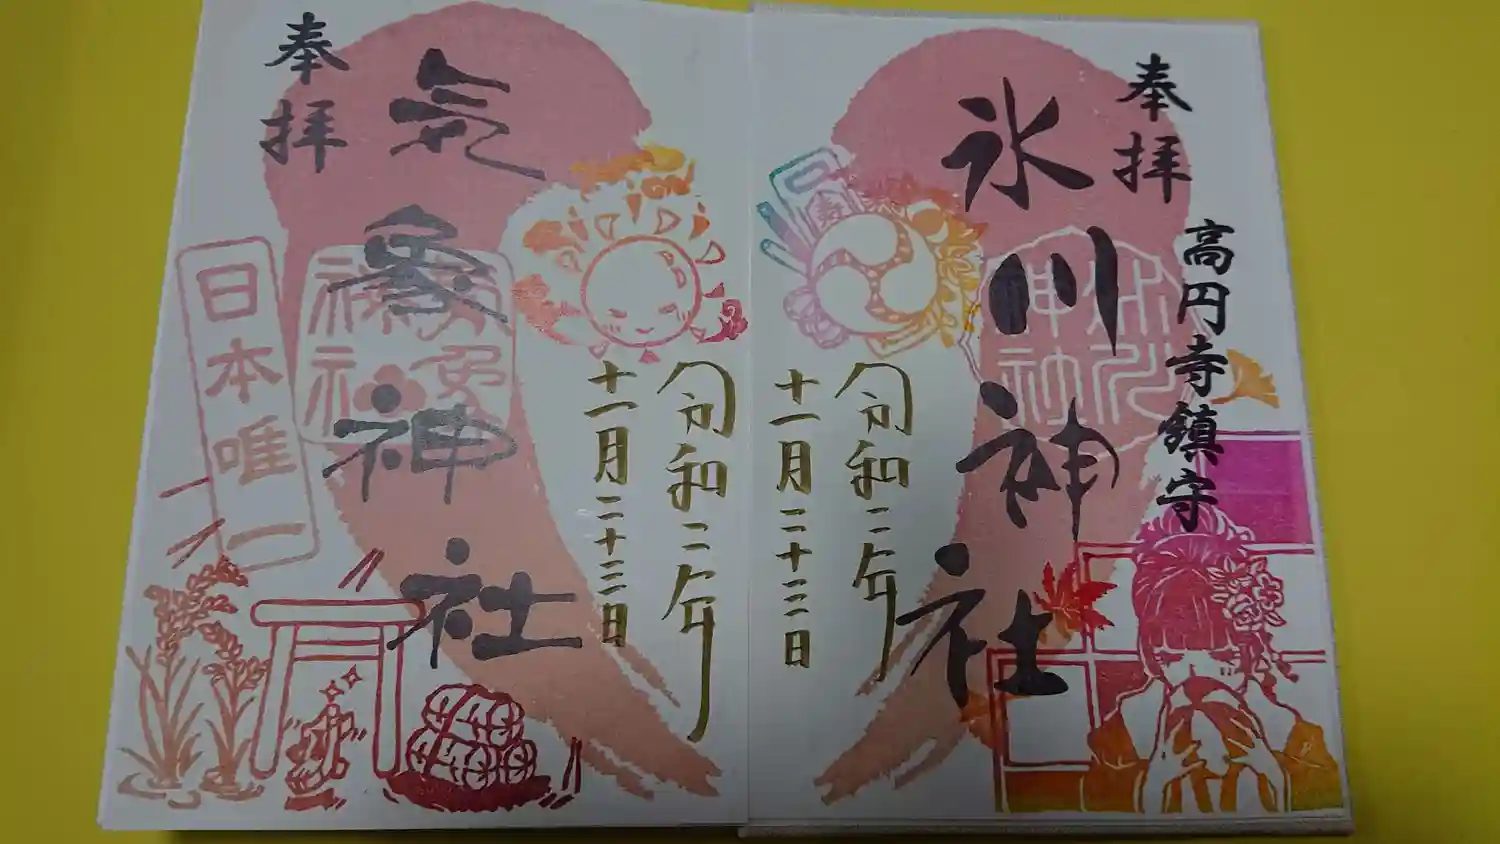 奉拝
高円寺鎮守
氷川神社
氷川神社
令和二年
十一月二十三日
令和二年
十一月二十三日
気象神社
奉拝
日本唯一